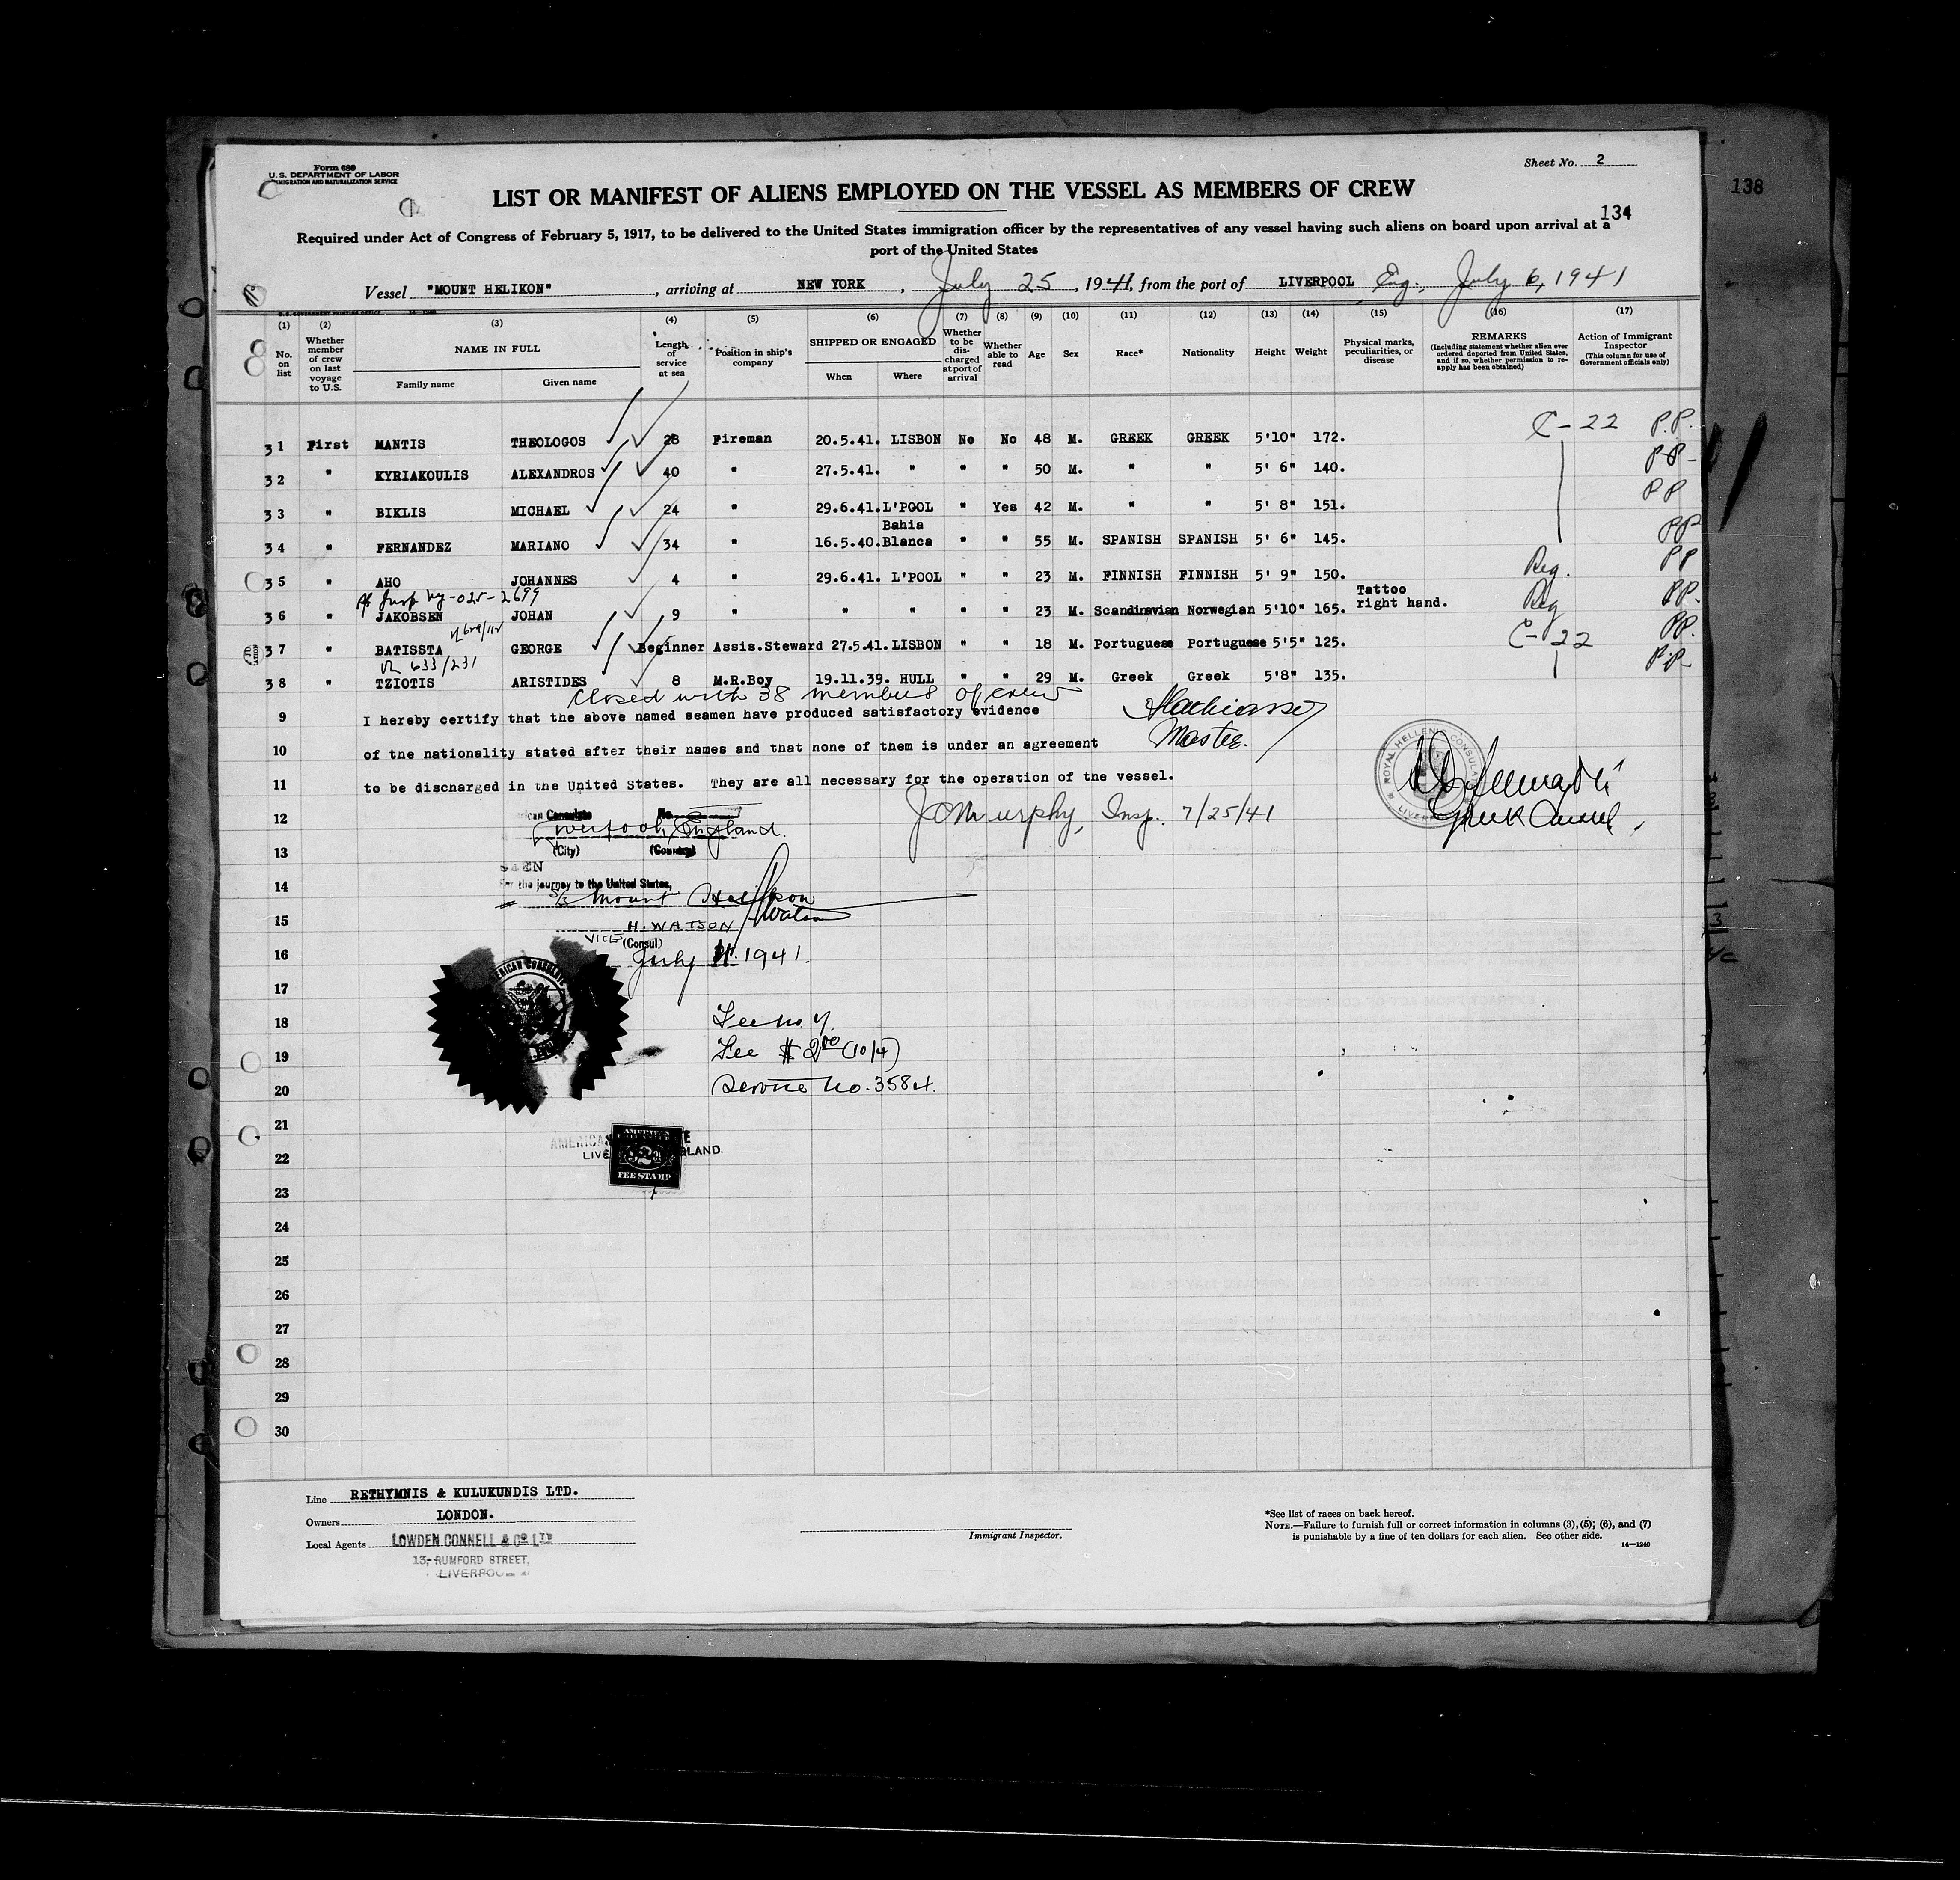 Form 680
U.S. DEPARTMENT OF LABOR
IMMIGRATION AND NATURALIZATION SERVICE
Sheet No. 2
138
LIST OR MANIFEST OF ALIENS EMPLOYED ON THE VESSEL AS MEMBERS OF CREW
134
Required under Act of Congress of February 5, 1917, to be delivered to the United States immigration officer by the representatives of any vessel having such aliens on board upon arrival at a
port of the United States
Vessel "MOUNT HELIKON", arriving at NEW YORK, July 25, 1941, from the port of LIVERPOOL Eng., July 6, 1941
(1) (2) (3) (4) (5) (6) (7) (8) (9) (10) (11) (12) (13) (14) (15) (16) (17)
No. on list
Whether member of crew on last voyage to U.S.
NAME IN FULL
Family name Given name
Length of service at sea
Position in ship's company
SHIPPED OR ENGAGED
When Where
Whether to be discharged at port of arrival
Whether able to read
Age
Sex
Race*
Nationality
Height
Weight
Physical marks, peculiarities, or disease
REMARKS
(Including statement whether alien ever ordered deported from United States, and if so, whether permission to reapply has been obtained)
Action of Immigrant Inspector
(This column for use of Government officials only)
31 First MANTIS THEOLOGOS 28 Fireman 20.5.41. LISBON No No 48 M. GREEK GREEK 5'10" 172. C-22 P.P.
32 " KYRIAKOULIS ALEXANDROS 40 " 27.5.41. " " " 50 M. " " 5' 6" 140. PP-
33 " BIKLIS MICHAEL 24 " 29.6.41. L'POOL " Yes 42 M. " " 5' 8" 151. PP
34 " FERNANDEZ MARIANO 34 " 16.5.40. Bahia Blanca " " 55 M. SPANISH SPANISH 5' 6" 145. PP
35 " AHO JOHANNES 4 " 29.6.41. L'POOL " " 23 M. FINNISH FINNISH 5' 9" 150. Reg. PP
36 " JAKOBSEN JOHAN 9 " " " " " 23 M. Scandinavian Norwegian 5'10" 165. Tattoo right hand. Reg PP.
37 " BATISSTA GEORGE Beginner Assis.Steward 27.5.41. LISBON " " 18 M. Portuguese Portuguese 5'5" 125. C-22 PP.
633/231
38 " TZIOTIS ARISTIDES 8 M.R.Boy 19.11.39. HULL " " 29 M. Greek Greek 5'8" 135. P.P-
Closed with 38 members of crew
9 I hereby certify that the above named seamen have produced satisfactory evidence
Master.
10 of the nationality stated after their names and that none of them is under an agreement
11 to be discharged in the United States. They are all necessary for the operation of the vessel.
ROYAL HELLENIC CONSULATE
LIVERPOOL
Greek Consul
JOMurphy, Insp. 7/25/41
12 American Consulate No.
Liverpool, England.
13 (City) (Country)
SEEN
14 For the journey to the United States,
S/S Mount Helikon
Watson
15 H. WATSON
VICE (Consul)
16 July 1941.
17
18
Fee $2.00 (10/4)
19
Service No. 3584.
20
21
AMERICAN CONSULATE
LIVERPOOL, ENGLAND.
FEE STAMP
22
23
24
25
26
27
28
29
30
Line RETHYMNIS & KULUKUNDIS LTD.
Owners LONDON.
Local Agents LOWDEN CONNELL & CO. LTD
13, RUMFORD STREET,
LIVERPOOL
Immigrant Inspector.
*See list of races on back hereof.
NOTE.—Failure to furnish full or correct information in columns (3), (5), (6), and (7)
is punishable by a fine of ten dollars for each alien. See other side.
14—1240